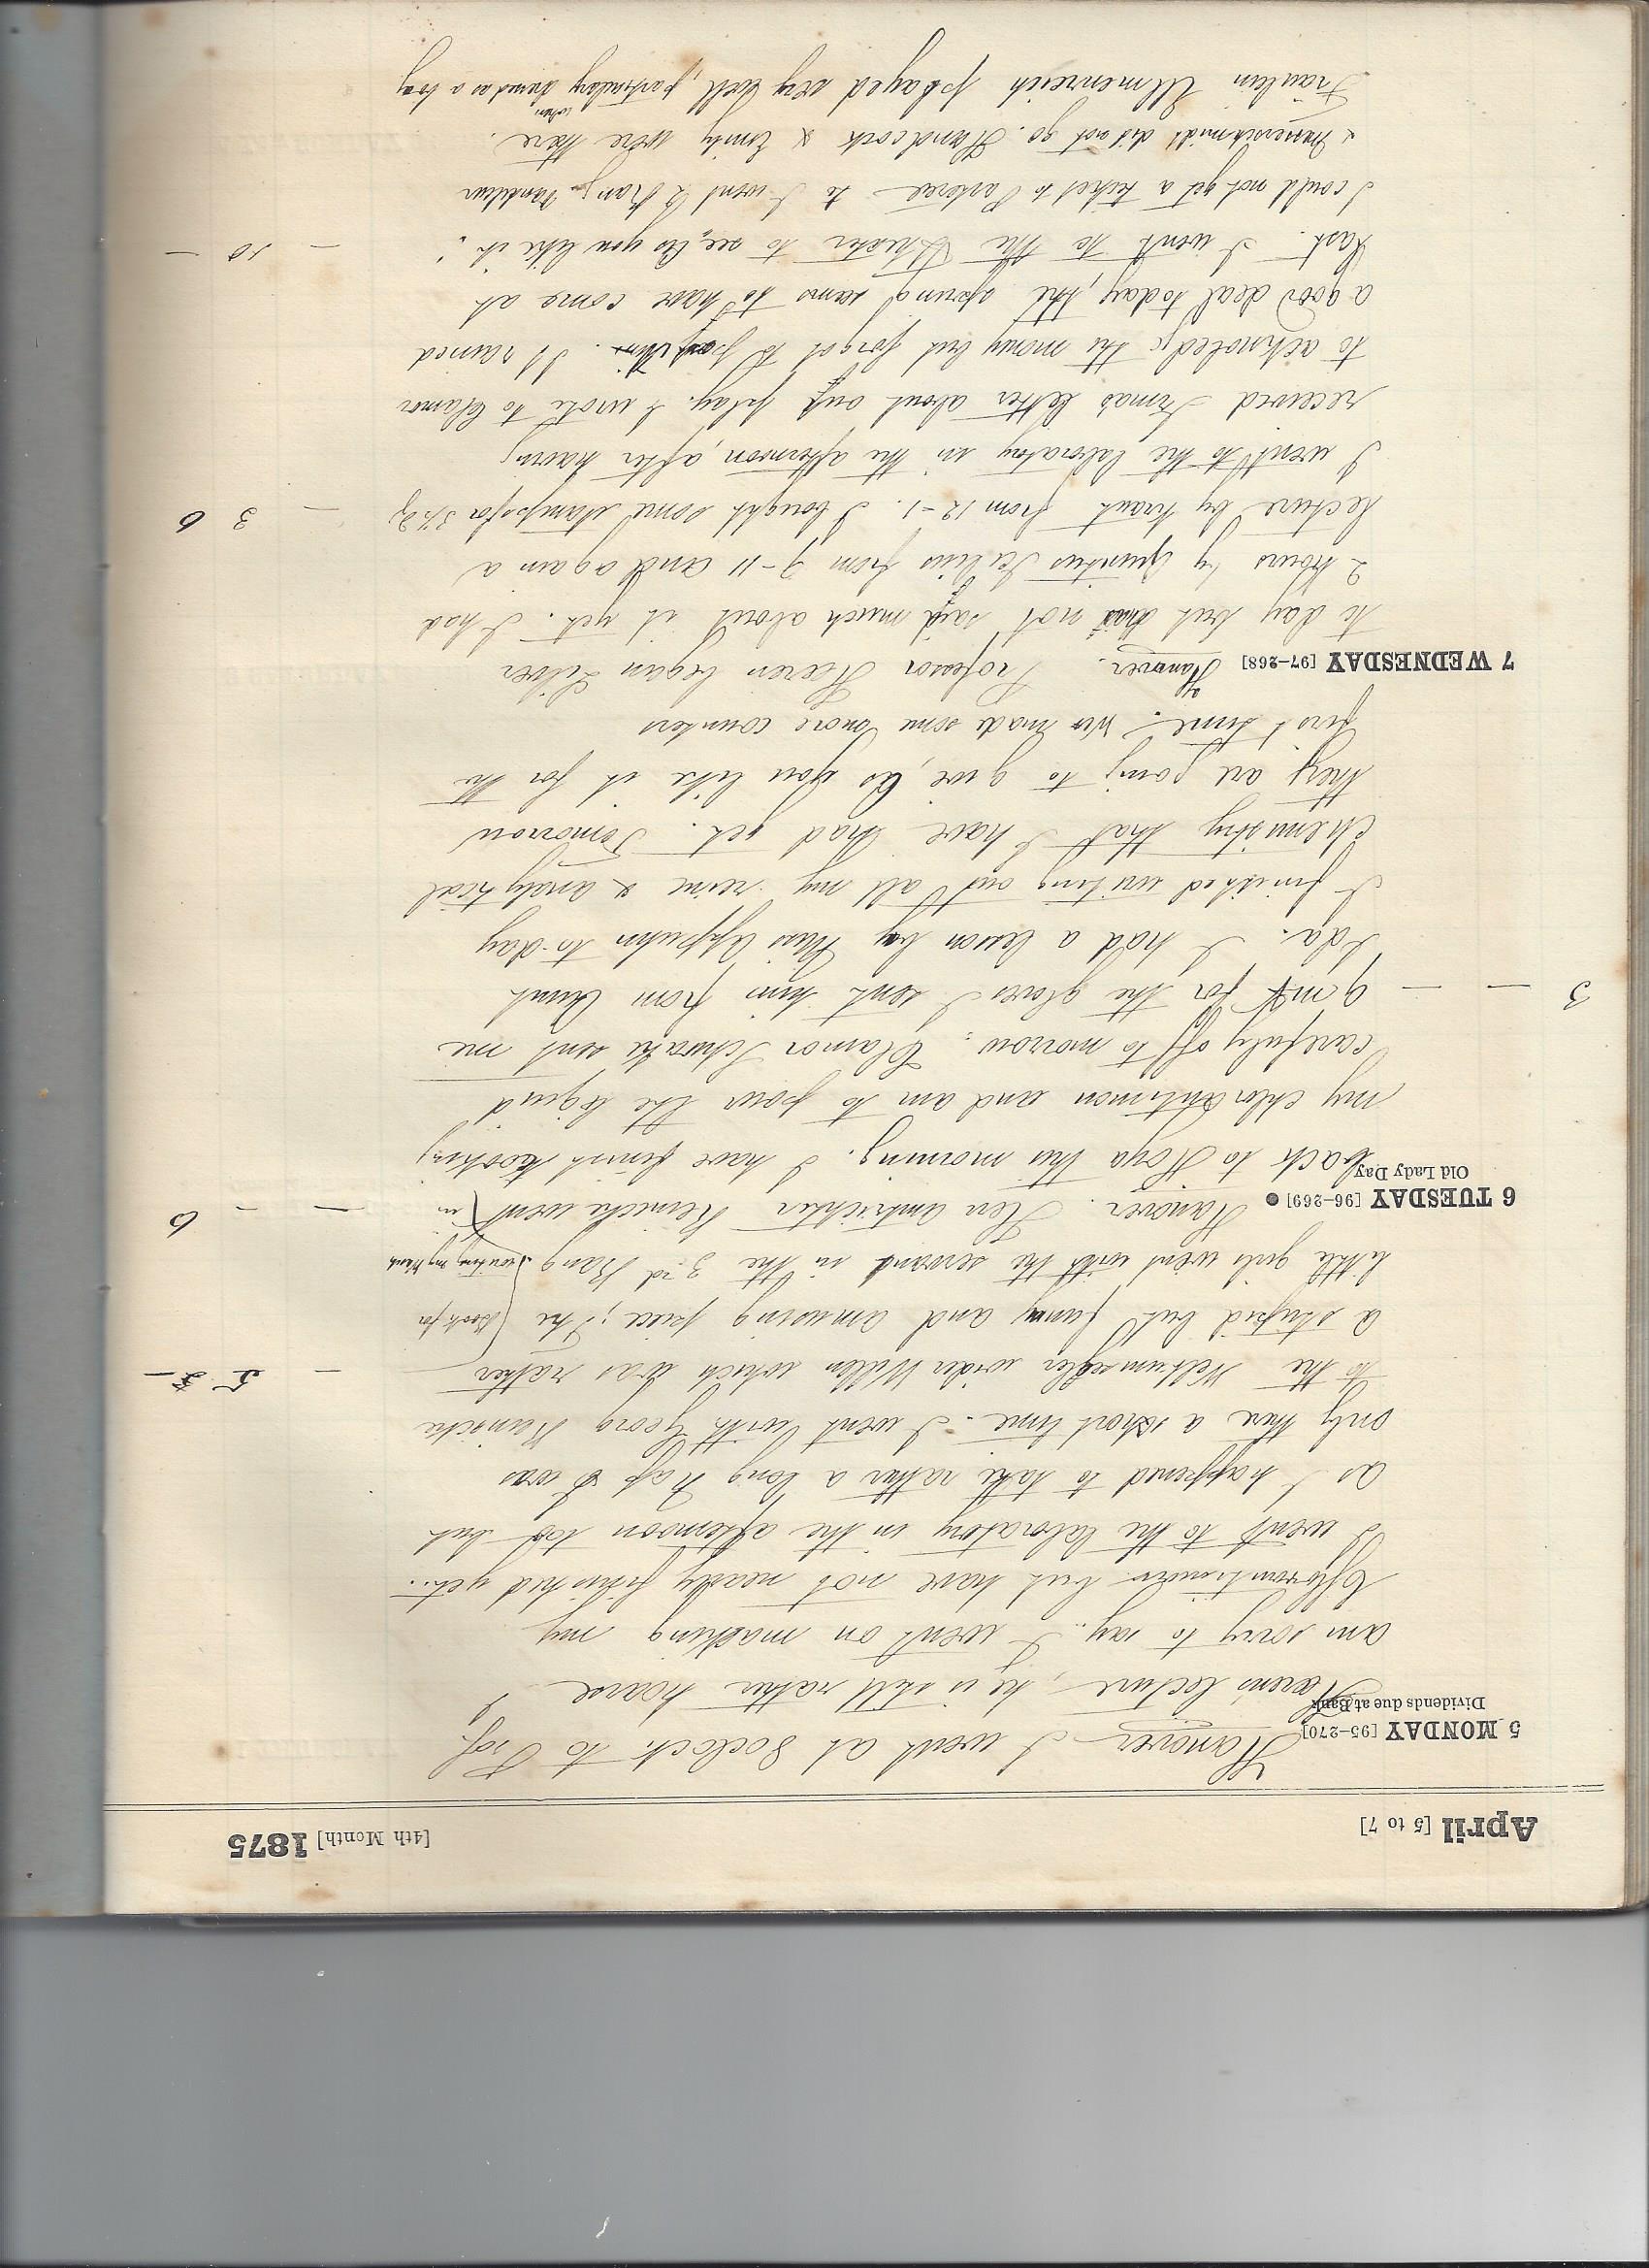 April [5 to 7] [4th Month] 1875
5 MONDAY [95-270] Hanover I went at 8 oclock to Prof.
Dividends due at Bank
Heeren's lecture, he is still rather hoarse I
am sorry to say. I went on making my
but have not nearly finished yet.
I went to the laboratory in the afternoon too but
as I happened to take rather a long nap I was
only there a short time. I went with Georg Reinicke
to the Veilchenfresser wider Willen which was rather — 5 —
a stupid but funny and amusing piece; The (Book for
little girls went with the servant in the 3rd Rang (writing my
6 TUESDAY [96-269] Hanover. Herr amtrichter Reinicke went (in — — 6
Old Lady Day
back to Hoya this morning. I have finish cooking
my chlorantimon and am to pour the liquid
carefuly off to morrow. Clamor Schwake sent me
3 — — 9 mk for the gloves I sent him from Aunt
Ida. I had a lesson by Miss Appuhn to-day
I finished writing out all my reine & analytical
Chemistry that I have had yet. Tomorrow
they are going to give, As you like it for the
first time. We made some more counters
7 WEDNESDAY [97-268] Hanover. Professor Heeren began Silver
to day but has not said much about it yet. I had
2 hours by Quintus Icilius from 9-11 and again a
lecture by Kraut from 12-1. I bought some stamps for 3½ — 3 6
I went to the laboratory in the afternoon, after having
received Irma's letter about our play. I wrote to Clamor
to acknoledge the money but forgot to . It rained
a good deal today, the spring seems to have come at
last. I went to the theater to see, As you like it". — 10 —
I could not get a ticket to Parterre so I went 2 Rang,
& Messerschmidt did not go. Handcock & Emily were there.
Fräulein Ulmenreich played very well, particulary when dressed as a boy